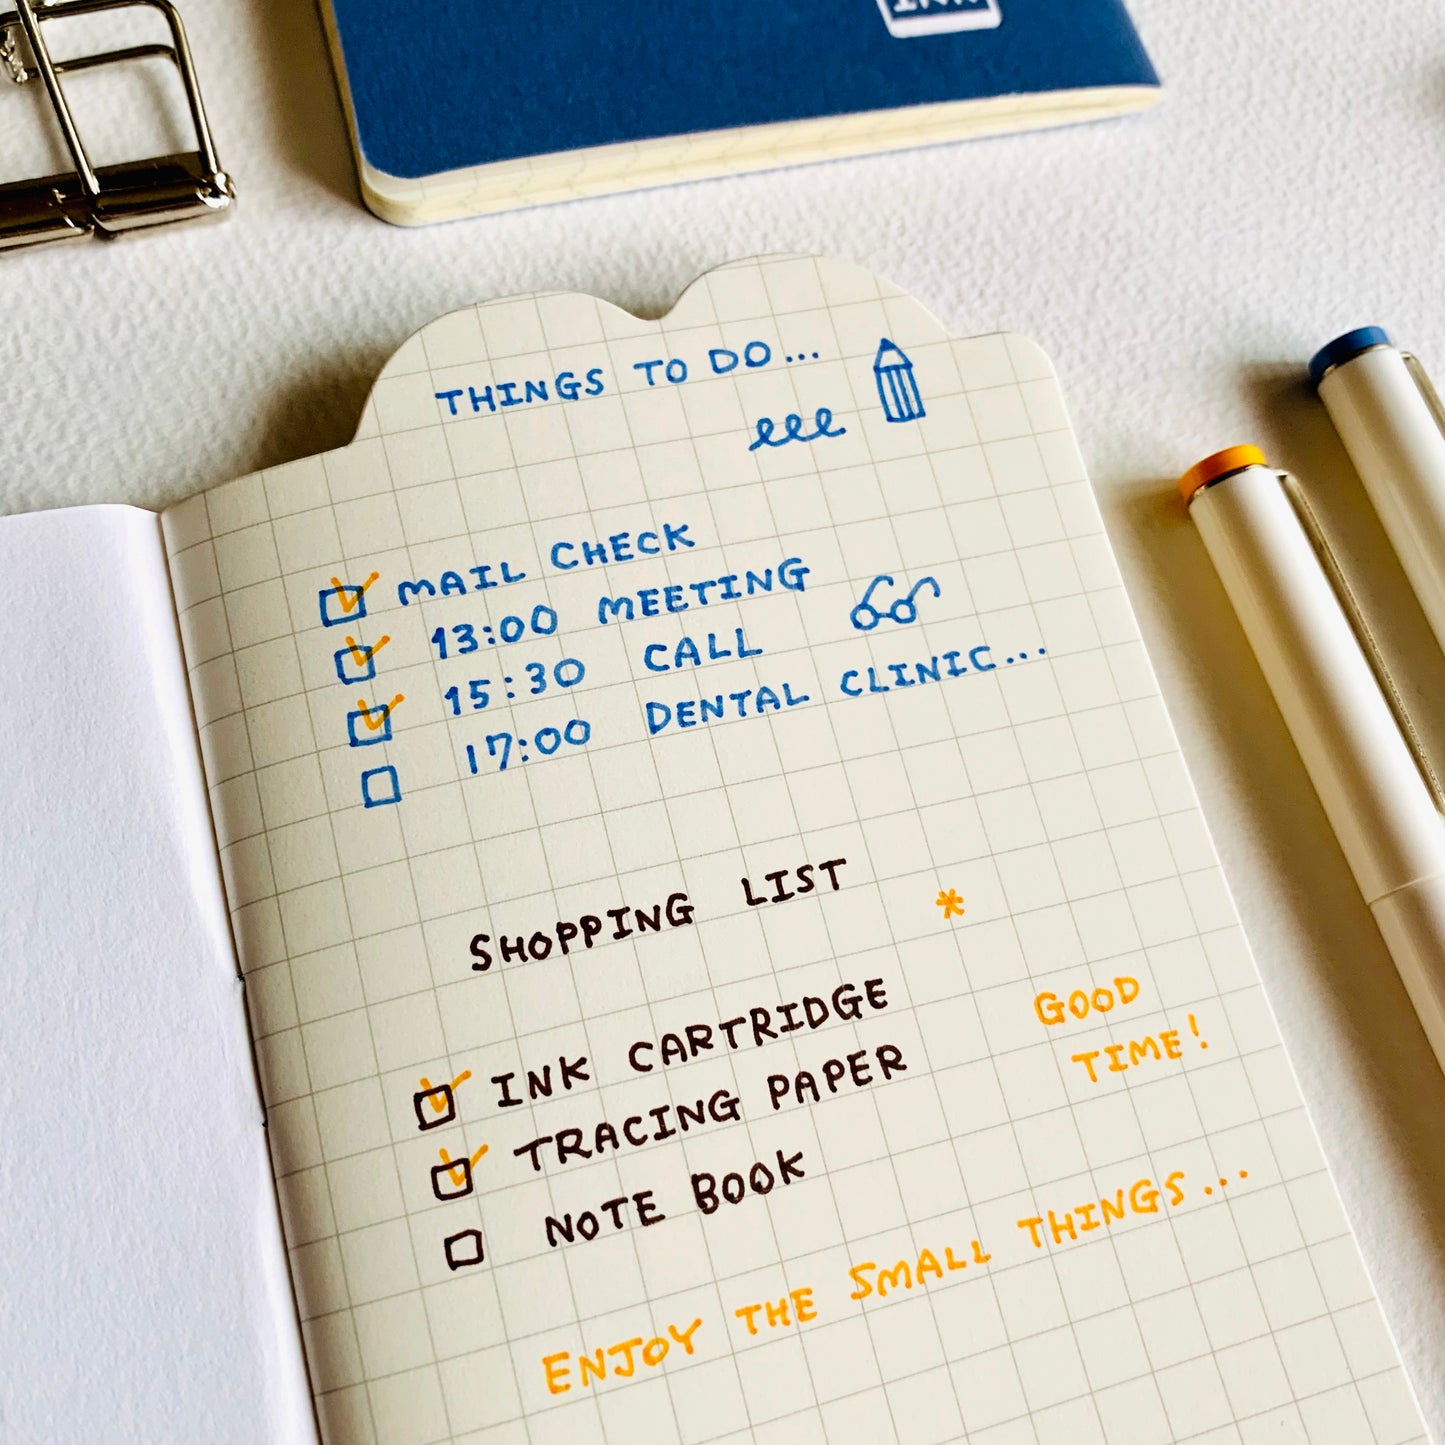 THINGS TO DO...
MAIL CHECK
13:00 MEETING
15:30 CALL
17:00 DENTAL CLINIC...
SHOPPING LIST
*
INK CARTRIDGE
TRACING PAPER
NOTE BOOK
GOOD
TIME!
ENJOY THE SMALL THINGS...